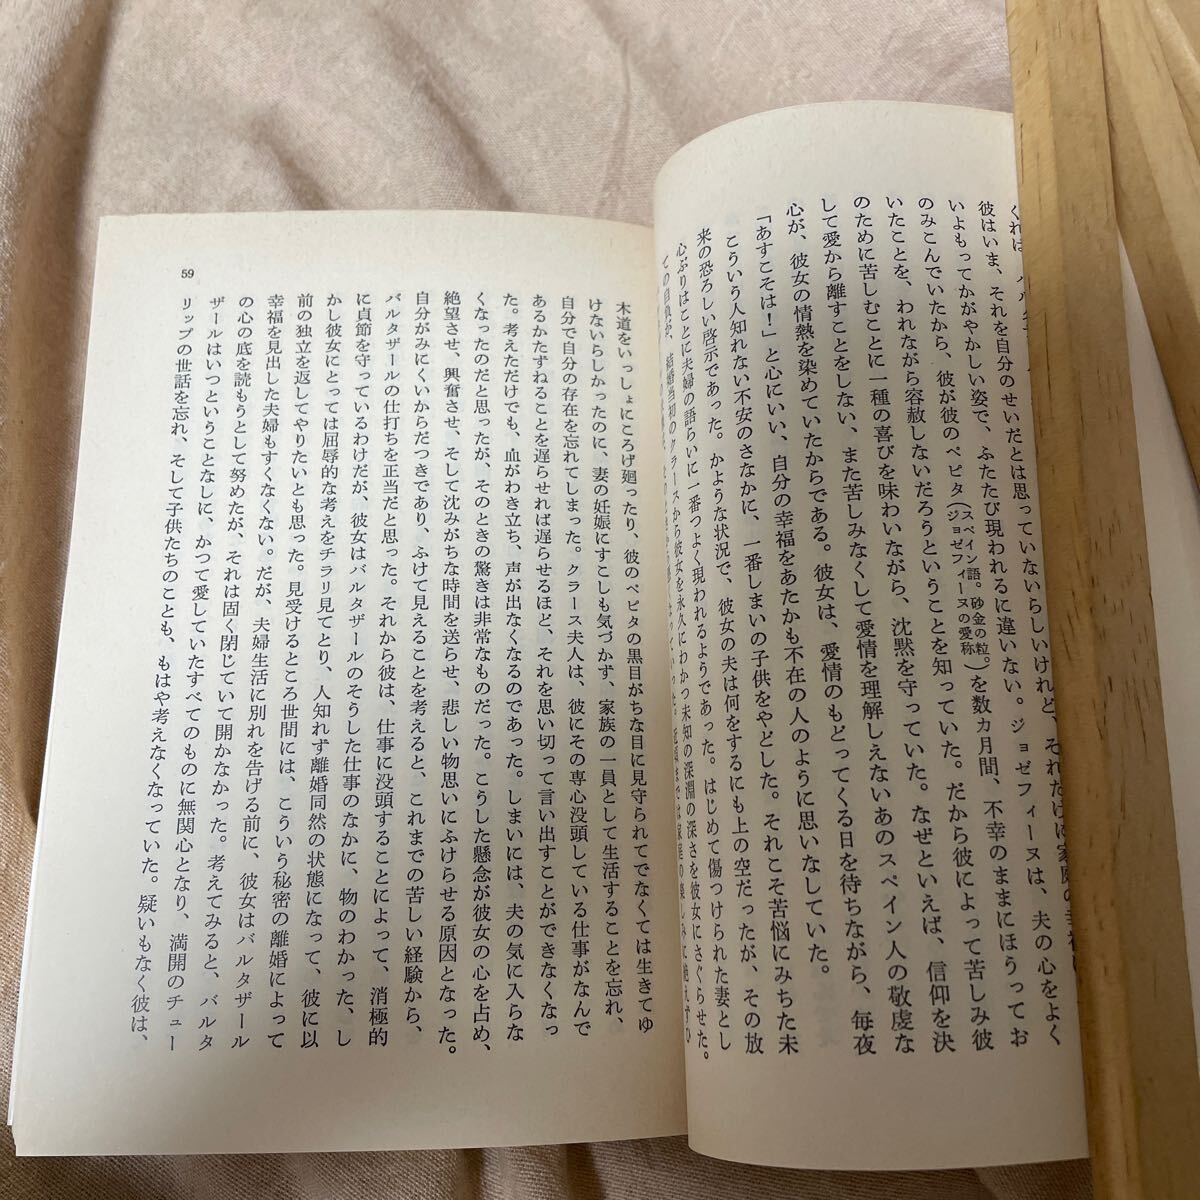 彼はいま、それを自分のせいだとは思っていないらしいけれど、それだけに家庭の
いよもってかがやかしい姿で、ふたたび現われるに違いない。ジョゼフィーヌは、夫の心をよく
のみこんでいたから、彼が彼のペピタ(スペイン語。砂金の粒。ジョゼフィーヌの愛称)を数カ月間、不幸のままにほうってお
いたことを、われながら容赦しないだろうということを知っていた。だから彼によって苦しみ彼
のために苦しむことに一種の喜びを味わいながら、沈黙を守っていた。なぜといえば、信仰を決
して愛から離すことをしない、また苦しみなくして愛情を理解しえないあのスペイン人の敬虔な
心が、彼女の情熱を染めていたからである。彼女は、愛情のもどってくる日を待ちながら、毎夜
「あすこそは!」と心にいい、自分の幸福をあたかも不在の人のように思いなしていた。
こういう人知れない不安のさなかに、一番しまいの子供をやどした。それこそ苦悩にみちた未
来の恐ろしい啓示であった。かような状況で、彼女の夫は何をするにも上の空だったが、その放
心ぶりはことに夫婦の語らいに一番つよく現われるようであった。はじめて傷つけられた妻とし
ての自負が、結婚当初のクラースから彼女を永久にわかつ未知の深淵の深さを彼女にさぐらせた。
木道をいっしょにころげ廻ったり、彼のペピタの黒目がちな目に見守られてでなくては生きてゆ
けないらしかったのに、妻の妊娠にすこしも気づかず、家族の一員として生活することを忘れ、
自分で自分の存在を忘れてしまった。クラース夫人は、彼にその専心没頭している仕事がなんで
あるかたずねることを遅らせれば遅らせるほど、それを思い切って言い出すことができなくなっ
た。考えただけでも、血がわき立ち、声が出なくなるのであった。しまいには、夫の気に入らな
くなったのだと思ったが、そのときの驚きは非常なものだった。こうした懸念が彼女の心を占め、
絶望させ、興奮させ、そして沈みがちな時間を送らせ、悲しい物思いにふけらせる原因となった。
自分がみにくいからだつきであり、ふけて見えることを考えると、これまでの苦しい経験から、
バルタザールの仕打ちを正当だと思った。それから彼は、仕事に没頭することによって、消極的
に貞節を守っているわけだが、彼女はバルタザールのそうした仕事のなかに、物のわかった、し
かし彼女にとっては屈辱的な考えをチラリ見てとり、人知れず離婚同然の状態になって、彼に以
前の独立を返してやりたいとも思った。見受けるところ世間には、こういう秘密の離婚によって
幸福を見出した夫婦もすくなくない。だが、夫婦生活に別れを告げる前に、彼女はバルタザール
の心の底を読もうとして努めたが、それは固く閉じていて開かなかった。考えてみると、バルタ
ザールはいつということなしに、かつて愛していたすべてのものに無関心となり、満開のチュー
リップの世話を忘れ、そして子供たちのことも、もはや考えなくなっていた。疑いもなく彼は、
59